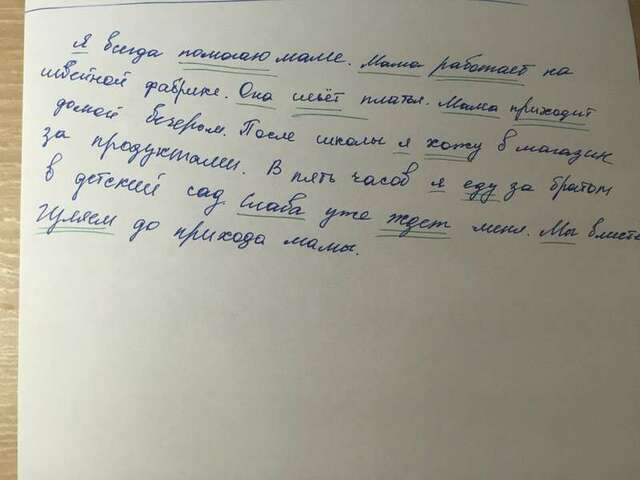 Я всегда помогаю маме. Мама работает на
швейной фабрике. Она шьёт платья. Мама приходит
домой вечером. После школы я хожу в магазин
за продуктами. В пять часов я еду за братом
в детский сад. Слава уже ждет меня. Мы вместе
гуляем до прихода мамы.